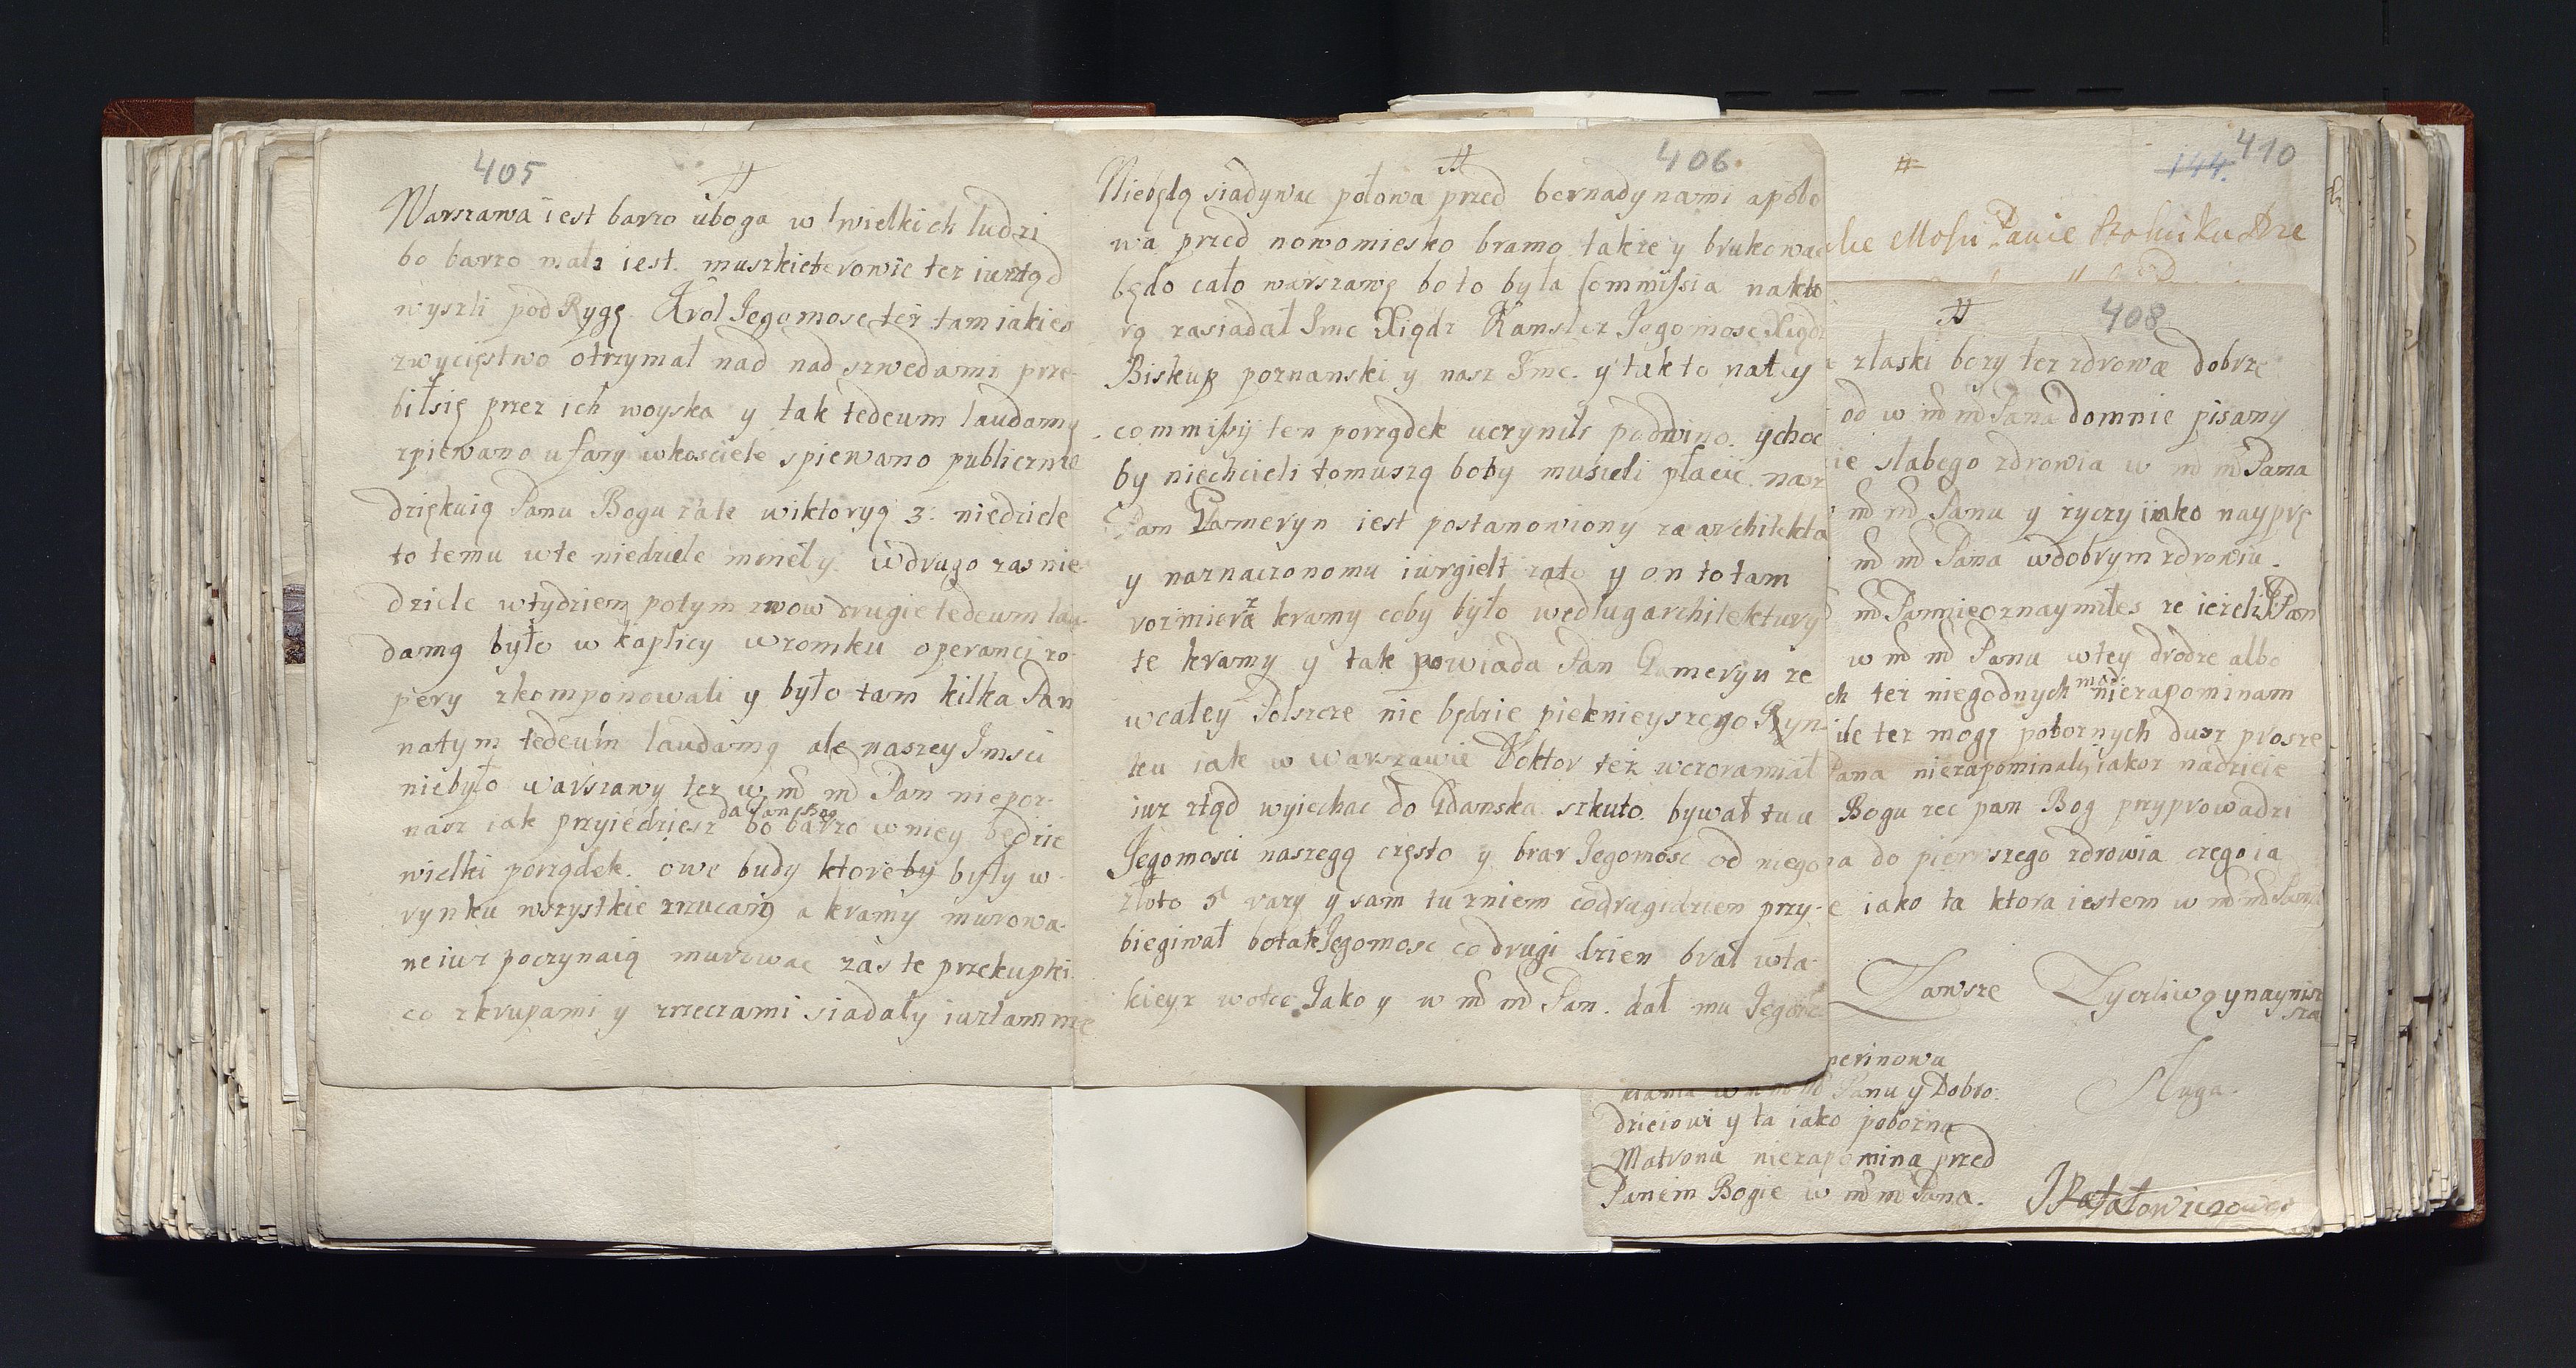 405
#
Warszawa iest barzo uboga w wielkich ludzi
bo barzo mało iest. muszkieterowie tez iuz ztąd
wyszli pod Rygę. Krol Jegomosc też tam iakies
zwycięstwo otrzymał nad nad szwedami prze-
biłsię przez ich woyska y tak tedeum laudamy
zpiewano ufary wkosciele spiewano publicznie
dziękuią Panu Bogu zatę wiktoryą 3. niedziele
to temu wte niedziele mineły. wdrugo zas nie
dziele wtydzień potym znow drugie tedeum lau-
damą było w kaplicy wzomku operanci zo-
pery zkomponowali y było tam kilka Pan
natym tedeum laudamą ale naszey Jmsci
niebyło warszawy tez w m m Pan niepoz-
nasz iak przyiedziesz da Pan Bog bo barzo wniey będzie
wielki porządek. owe budy ktore by były w
rynku wszystkie zrzucaią a kramy murowa-
ne iuz poczynaią murowac zaś te przekupki
co zkrupami y zrzeczami siadały iuztam nie
406.
#
Niebędą siadywac połowa przed bernadynami apoło
wa przed nowomiesko bramo także y brukowac
będo cało warszawę bo to była Commissia nakto
rą zasiadał Jmc Xiądz Kanslerz Jegomosc Xiądz
Biskup poznanski y nasz Jmc. y tak to na tey
commissij ten porządek uczynili podwino. ychoc
by niechcieli to muszą boby musieli płacic. nasz
Pan Gameryn iest postanowiony za architekta
y naznaczono mu iurgielt zato y on to tam
rozmierza kramy coby było według architektury
te kramy y tak powiada Pan Gameryn ze
wcałey Polszcze nie będzie pieknieyszego Ryn-
ku iak w warszawie Doktor też wczora miał
iuz ztąd wyiechac do Gdanska szkuto. bywał tu u
Jegomosci naszegą często y brar Jegomosc od niego
złoto 5 razy y sam tu zniem codrugidzien przy-
biegiwał botak Jegomosc co drugi dzien brał wta-
kieyz wodce Jako y w m m Pan. dał mu Jegomc
#
144. 410
Mosci Panie Stolniku Dre
#
408
złaski bozy tez zdrowa dobrze
od w m m Pana domnie pisany
ie słabego zdrowia w m m Pana
m m Panu y zyczy iako nayprę
m m Pana wdobrym zdrowiu.
m Pannie oznaymiłes ze iezeli Pan
w m m Panu wtey drodze albo
ch też niegodnych mod: niezapominam
ile tez mogę poboznych dusz prosze
Pana niezapominały iakoz nadzieie
Bogu zec pan Bog przyprowadzi
na do pierwszego zdrowia czego ia
e iako ta ktora iestem w m m Pana
Zawsze Zyczliwą y naynisz
sza
Sługa.
merinowa
kłania w m m Panu y Dobro:
dzieiowi y ta iako pobozna
Matrona niezapomina przed
Panem Bogie w m m Pana.
JRafałowiczowa